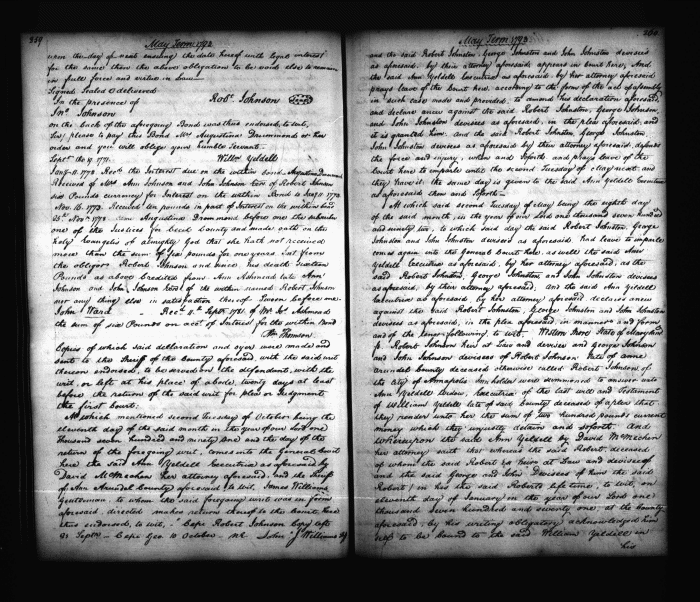 359
May Term 1792
upon the day of next ensuing the date hereof with legal interest
for the same then the above obligation to be void else to remain
in full force and virtue in Law
Signed Sealed & delivered
In the presence of Robt. Johnson
Jno. Johnson
on the back of the aforegoing Bond was thus endorsed, to wit,
Sir, please to pay this Bond Mrs. Augustina Drummond or her
order and you will oblige your humble Servant
Septr. the 19. 1771. Willm Yeldell
Jany. 11. 1773. Recd. the Interest due on the within bond Augustina Drummond
Received of Mrs. Ann Johnson and John Johnson Exors of Robert Johnson
six Pounds currency for Interest on the within Bond to Jany. 11. 1773
Nov. 15. 1773. Received ten pounds in part of Interest on the within bond
25th. Novr. 1778 Came Augustina Drummond before me the subscriber
one of the Justices for Cecil County and made oath on the
holy Evangels of almighty God that she hath not received
more than the sum of six pounds for one years Int. from
the obligor Robert Johnson and since his death sixteen
Pounds as above credited from Ann Ashmead late Ann
Johnson and John Johnson Exors of the within named Robert Johnson
nor any thing else in satisfaction thereof. Sworn before me
John Ward Recd. 11th. Septr. 1781. of Mr. Jos. Ashmead
the sum of six Pounds on acct. of Interest for the within Bond
Thomson
Copies of which said declaration and oyer were made and
sent to the Sheriff of the County aforesaid, with the said writ
thereon endorsed, to be served on the defendants, with the
writ, or left at his place of abode, twenty days at least
before the return of the said writ for plea or Judgment
the first Court.
At which mentioned second Tuesday of October being the
eleventh day of the said month in the year of our Lord one
thousand seven hundred and ninety one and the day of the
return of the foregoing writ, comes into the General Court
here the said Ann Yeldell Executrix as aforesaid by
David McMechen her attorney aforesaid. And the Sheriff
of Ann Arundel County aforesaid to wit, James Williams
Gentleman, to whom the said foregoing writ was in form
aforesaid, directed makes return thereof to the Court here
thus endorsed, to wit, "Cepi Robert Johnson Copy left
23 Septr. Cepi Geo 10 October John Williams Shff
260
May Term 1792
and the said Robert Johnston, George Johnston and John Johnston devisees
as aforesaid, by their attorney aforesaid appears in Court here, And
the said Ann Yeldell Executrix as aforesaid, by her attorney aforesaid
prays leave of the Court here, according to the form of the act of assembly
in such case made and provided, to amend his declaration aforesaid,
and declare anew against the said Robert Johnston, George Johnston,
and John Johnston devisees as aforesaid, in the plea aforesaid, and
it is granted him. and the said Robert Johnston, George Johnston,
John Johnston devisees as aforesaid by their attorney aforesaid, defends
the force and injury, when and soforth and prays leave of the
Court here to imparle until the second Tuesday of May next, and
they have it. the same day is given to the said Ann Yeldell Executrix
as aforesaid then and soforth.
At which said second Tuesday of May being the eighth day
of the said month, in the year of our Lord one thousand seven hundred
and ninety two, to which said day the said Robert Johnston, George
Johnston and John Johnston devisees as aforesaid had leave to imparle
comes again into the General Court here, as well the said Ann
Yeldell Executrix as aforesaid, by her attorney aforesaid, as the
said Robert Johnston, George Johnston, and John Johnston devisees
as aforesaid, by their attorney aforesaid, and the said Ann Yeldell
Executrix as aforesaid, by her attorney aforesaid declares anew
against the said Robert Johnston, George Johnston and John Johnston
devisees as aforesaid, in the plea aforesaid, in manner and form
and of the tenor following to wit. Western Shore State of Maryland
Robert Johnson heir at Law and devisee and George Johnson
and John Johnson devisees of Robert Johnson late of Anne
Arundel County deceased otherwise called Robert Johnson of
the City of Annapolis Inn holder were summoned to answer unto
Ann Yeldell widow, Executrix of the last will and Testament
of William Yeldell late of said County deceased of a plea that
they render unto her the sum of two hundred pounds current
money which they unjustly detain and soforth. And
whereupon the said Ann Yeldell by David McMechen
her attorney saith that whereas the said Robert, deceased
of whom the said Robert is heir at Law and devisee of
and the said George and John Devisees of him the said
Robert in his the said Roberts life time, to wit, on
eleventh day of January in the year of our Lord one
thousand seven hundred and seventy one, at the County
aforesaid, by his writing obligatory acknowledged him
self to be bound to the said William Yeldell in
his